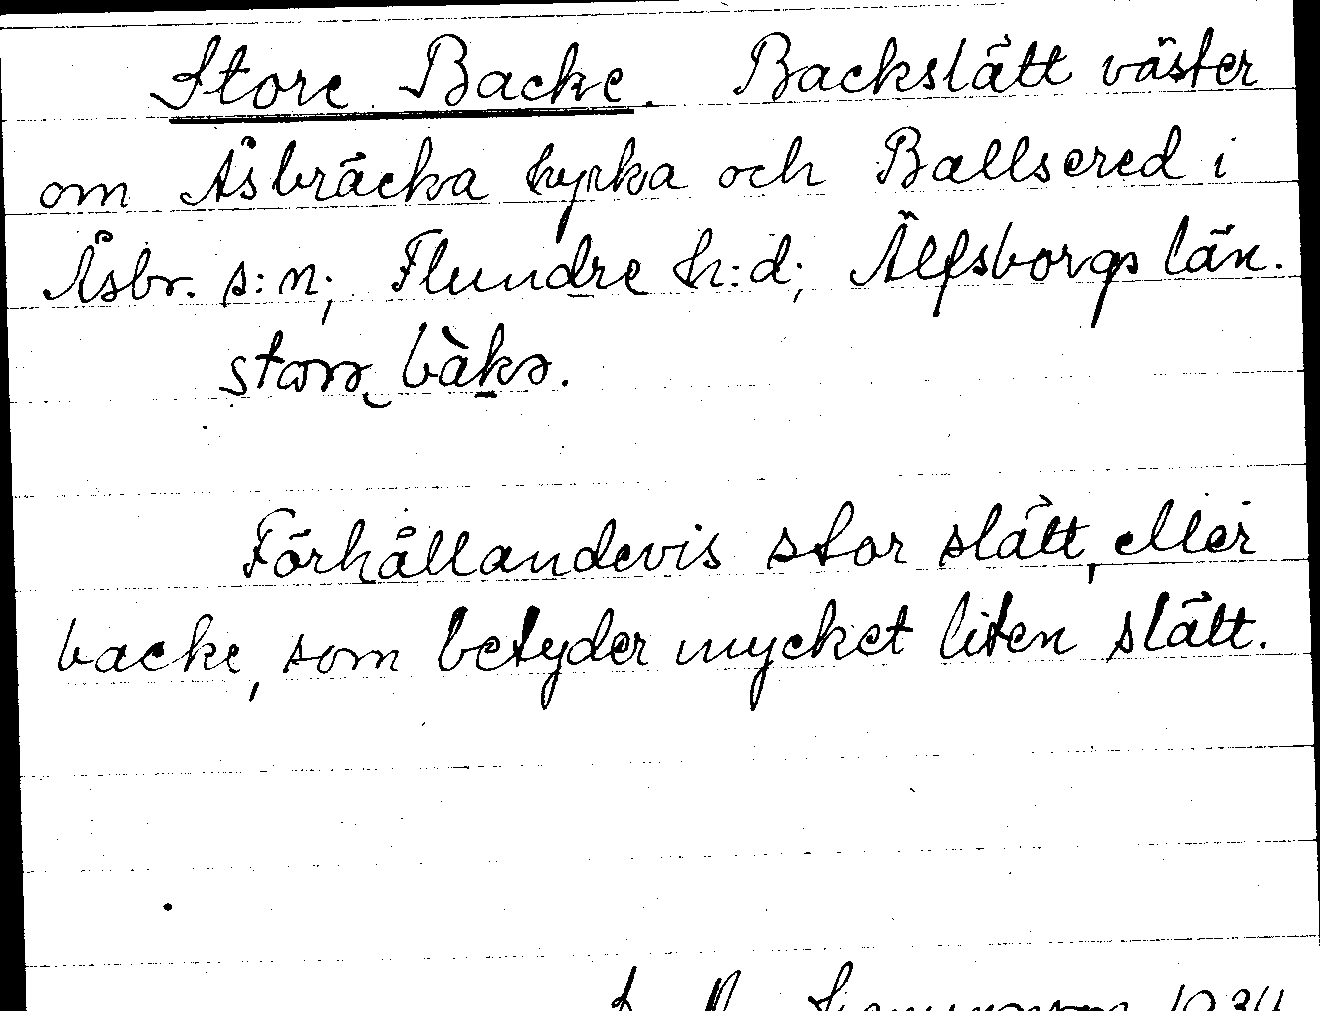 Store Backe. Backslätt väster
om Åsbräcka kyrka och Ballsered i
Åsbr. s:n; Flundre h:d; Älfsborgs län.
Förhållandevis stor slätt, eller
backe, som betyder mycket liten slätt.